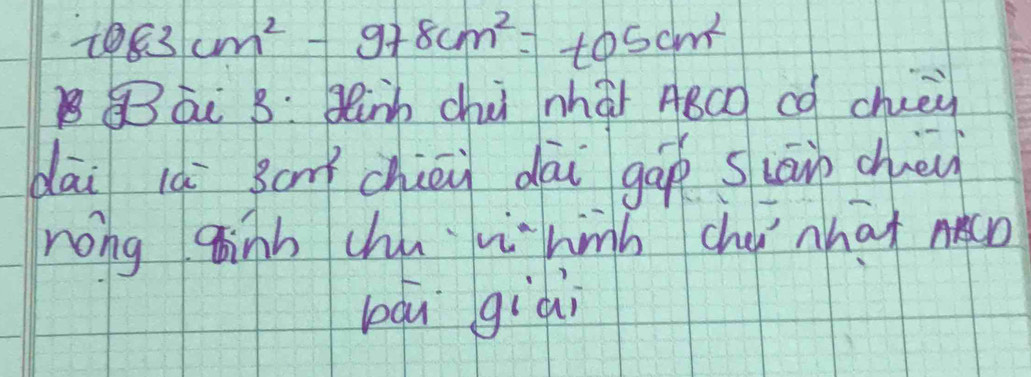 1083 cm² - 978cm² = 105cm²
Bài 3: Hình chữ nhật ABCD có chiều
dài là 3cm² chiều dài gấp 5 lần chiều
rộng. tính chu vi hình chữ nhật ABCD
bài giải